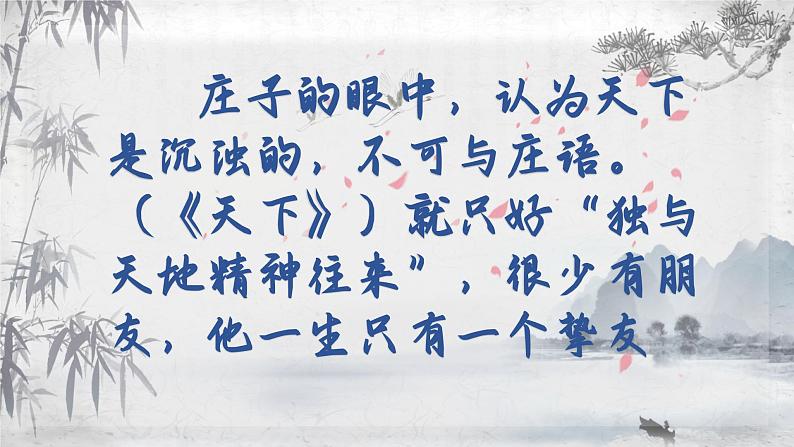 庄子的眼中，认为天下
是沉浊的，不可与庄语。
（《天下》）就只好“独与
天地精神往来”，很少有朋
友，他一生只有一个挚友